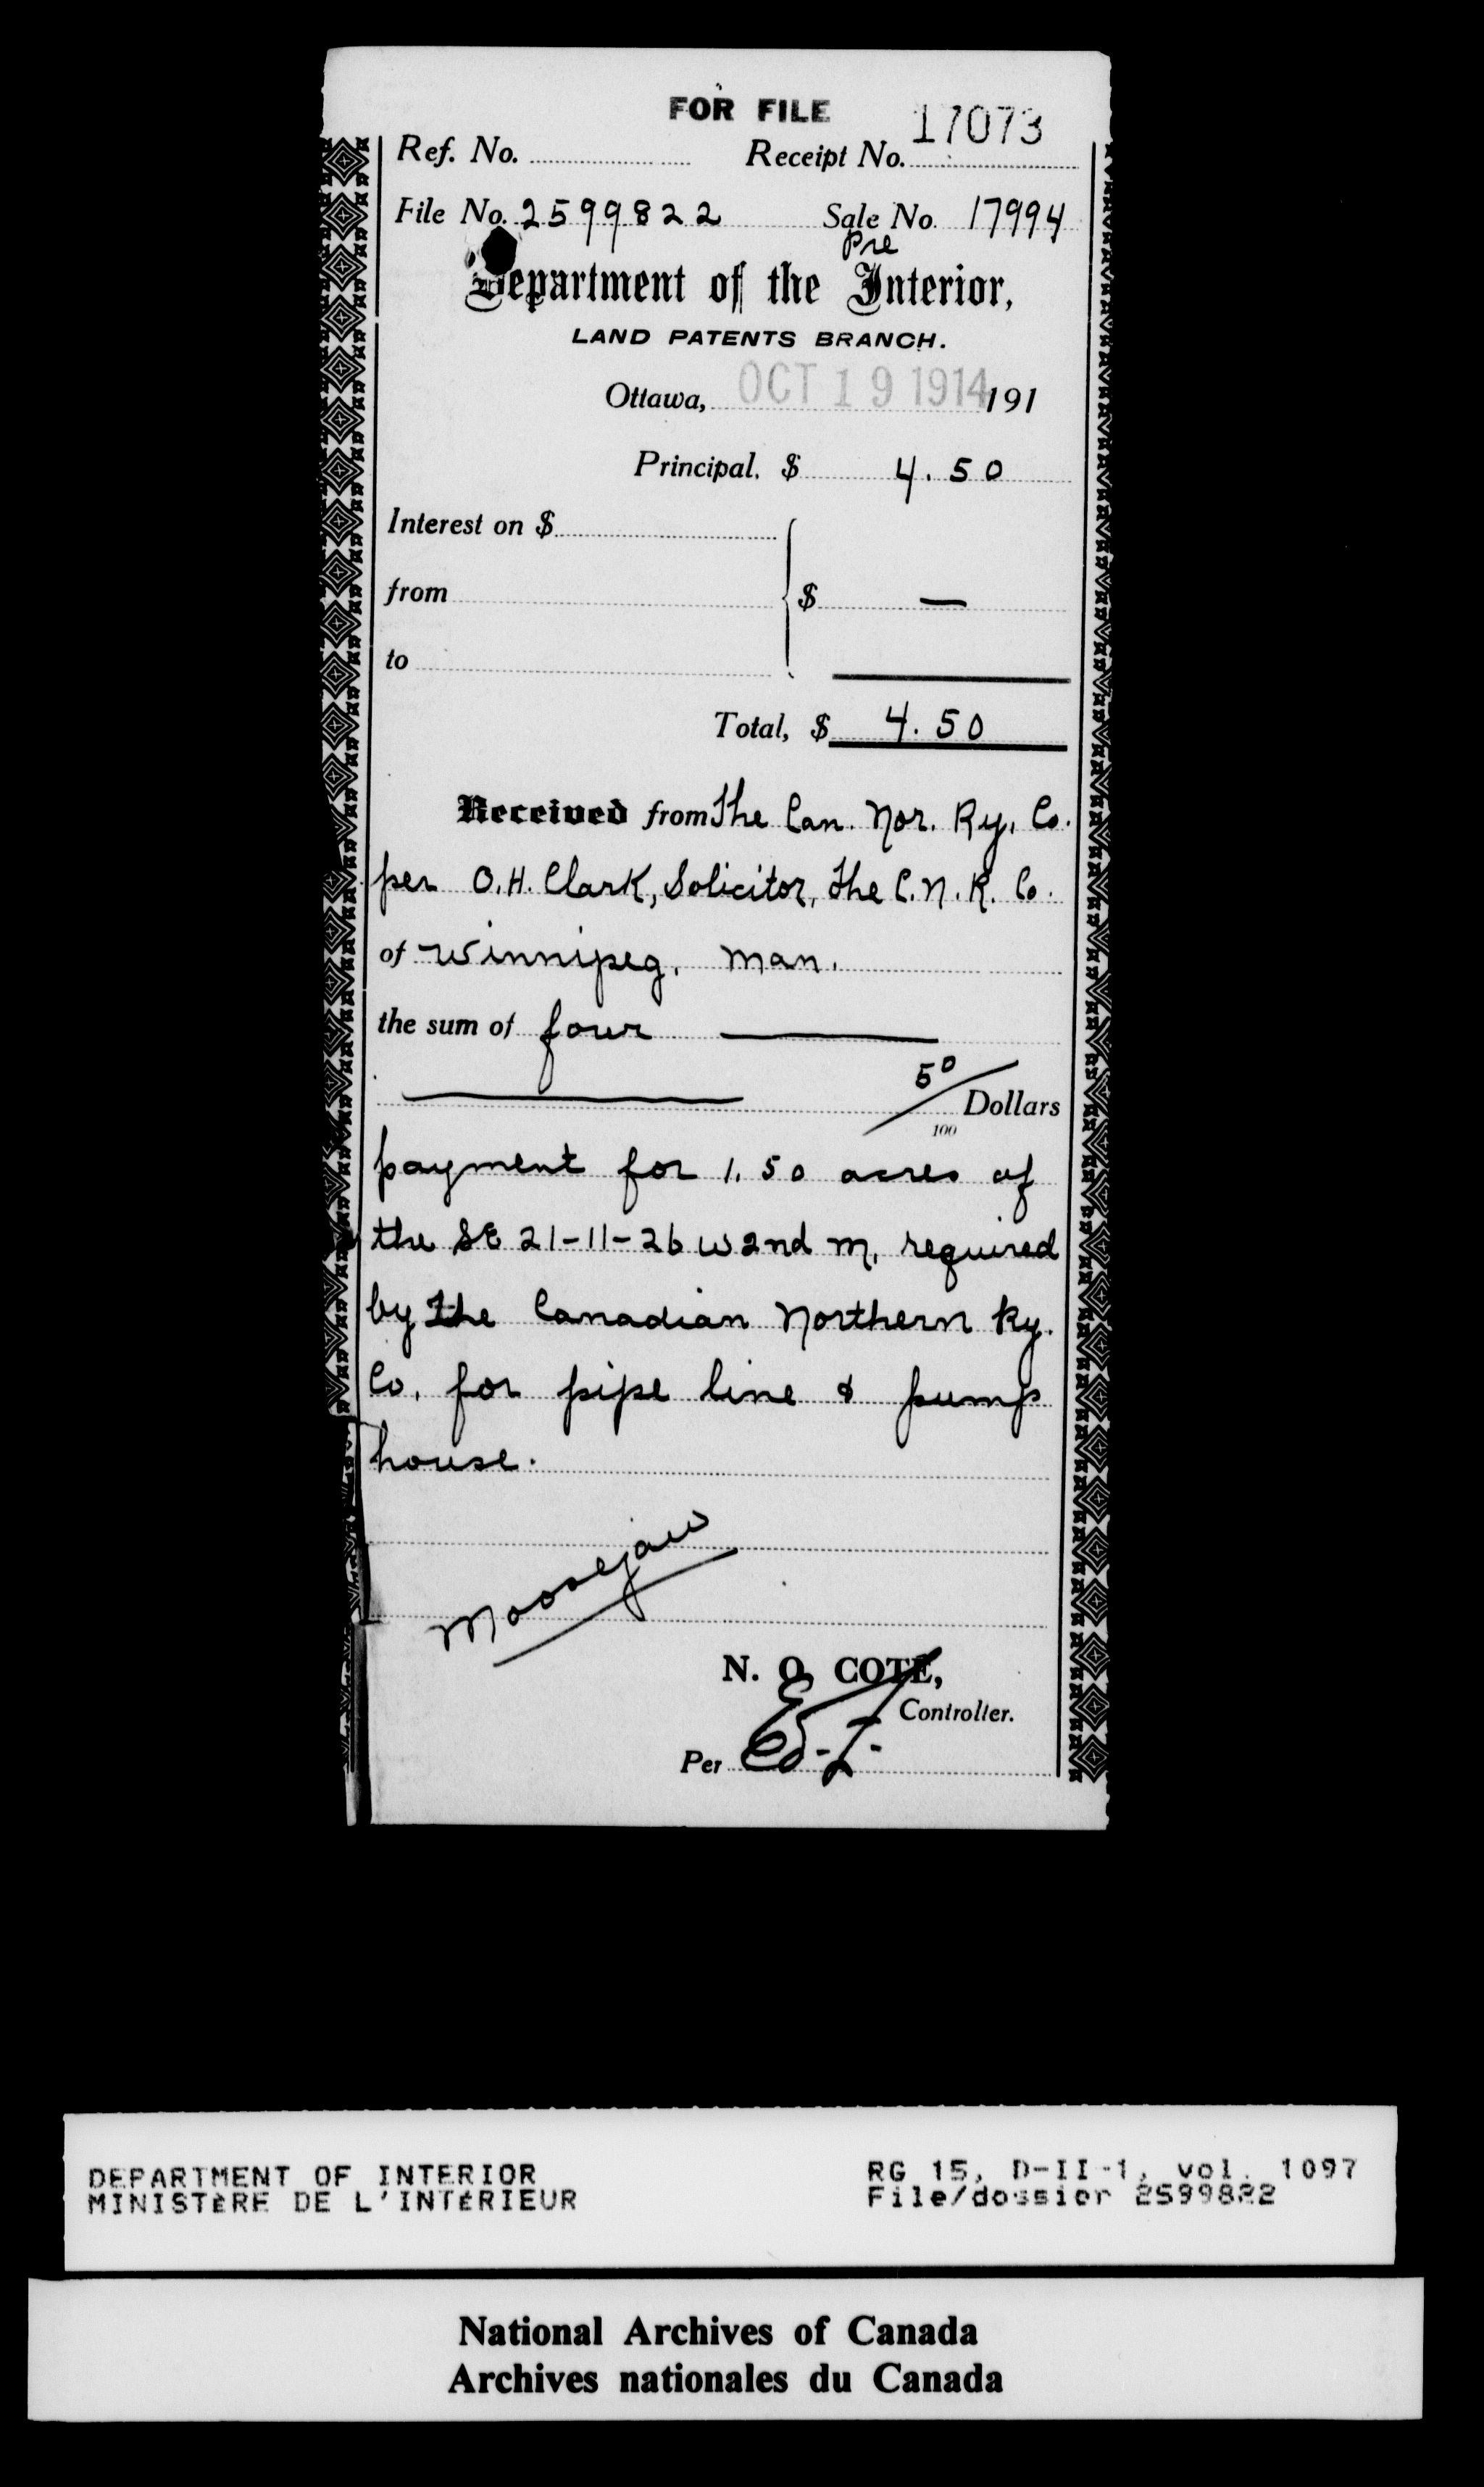 FOR FILE
17073
Ref. No. Receipt No.
File No. 2599822 Sale No. 17994
Pre
Department of the Interior,
LAND PATENTS BRANCH.
Ottawa, OCT 19 1914 191
Principal. $ 4.50
Interest on $
from $ —
to
Total, $ 4.50
Received from The Can. Nor. Ry. Co.
per O.H. Clark, Solicitor, The C.N.R. Co.
of Winnipeg, Man.
the sum of four
50/100 Dollars
payment for 1.50 acres of
the SE 21-11-26 W 2nd M. required
by The Canadian Northern Ry.
Co. for pipe line & pump
house.
Moosejaw
N. O. COTE,
Controller.
Per
DEPARTMENT OF INTERIOR RG 15, D-II-1, vol. 1097
MINISTÈRE DE L'INTÉRIEUR File/dossier 2599822
National Archives of Canada
Archives nationales du Canada